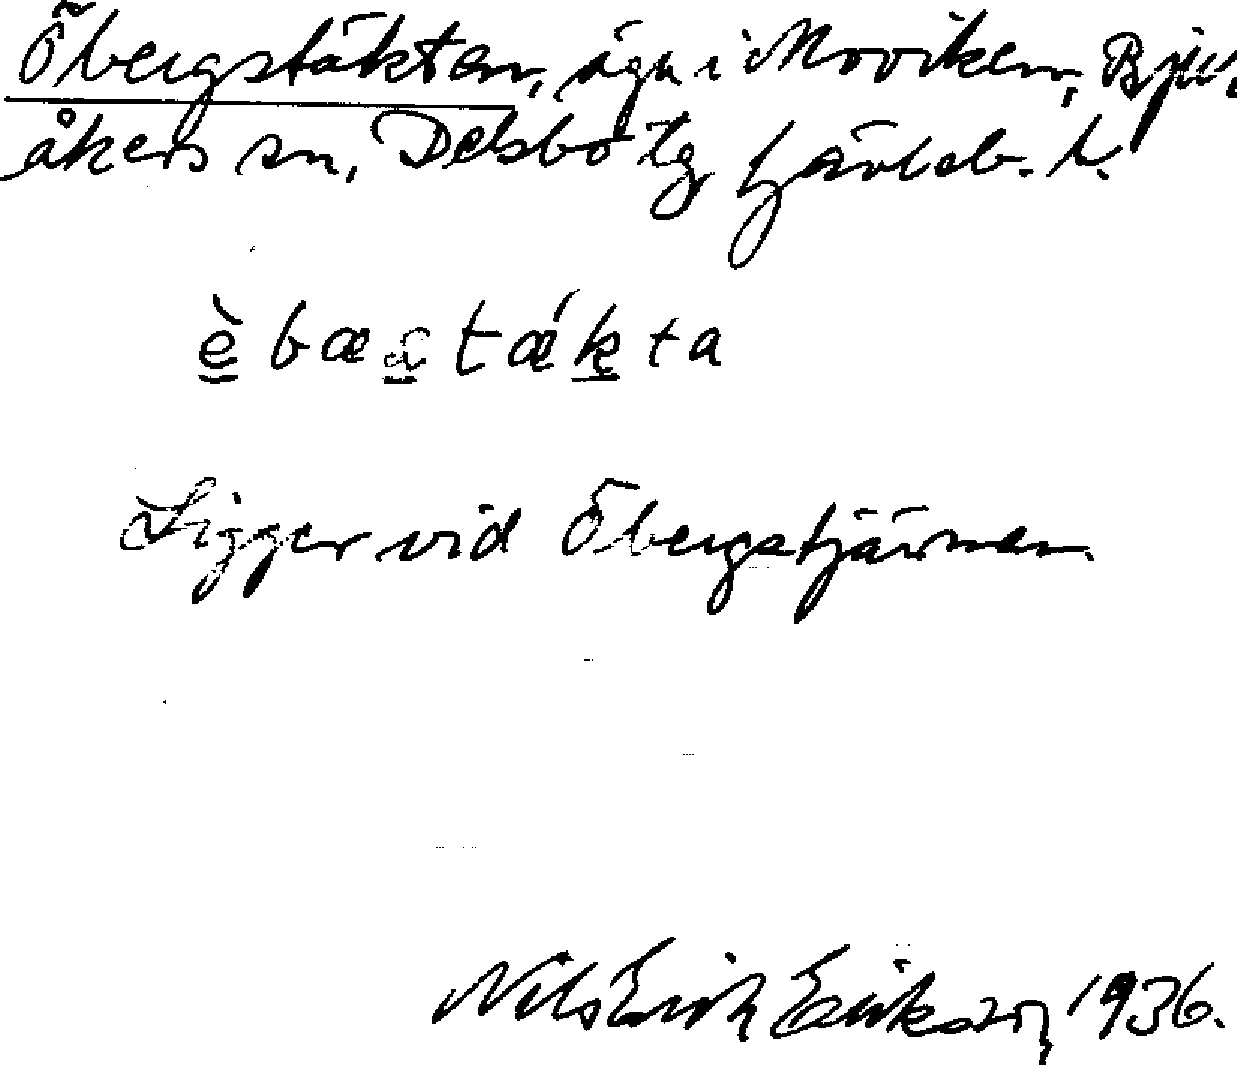 Öbergstäkten, ägn i Moviken, Bjur-
åkers sn, Delsbo tg Gävleb. l.
è bæ tǽkta
Ligger vid Öbergstjärnen.
Nils Erik Erikson, 1936.